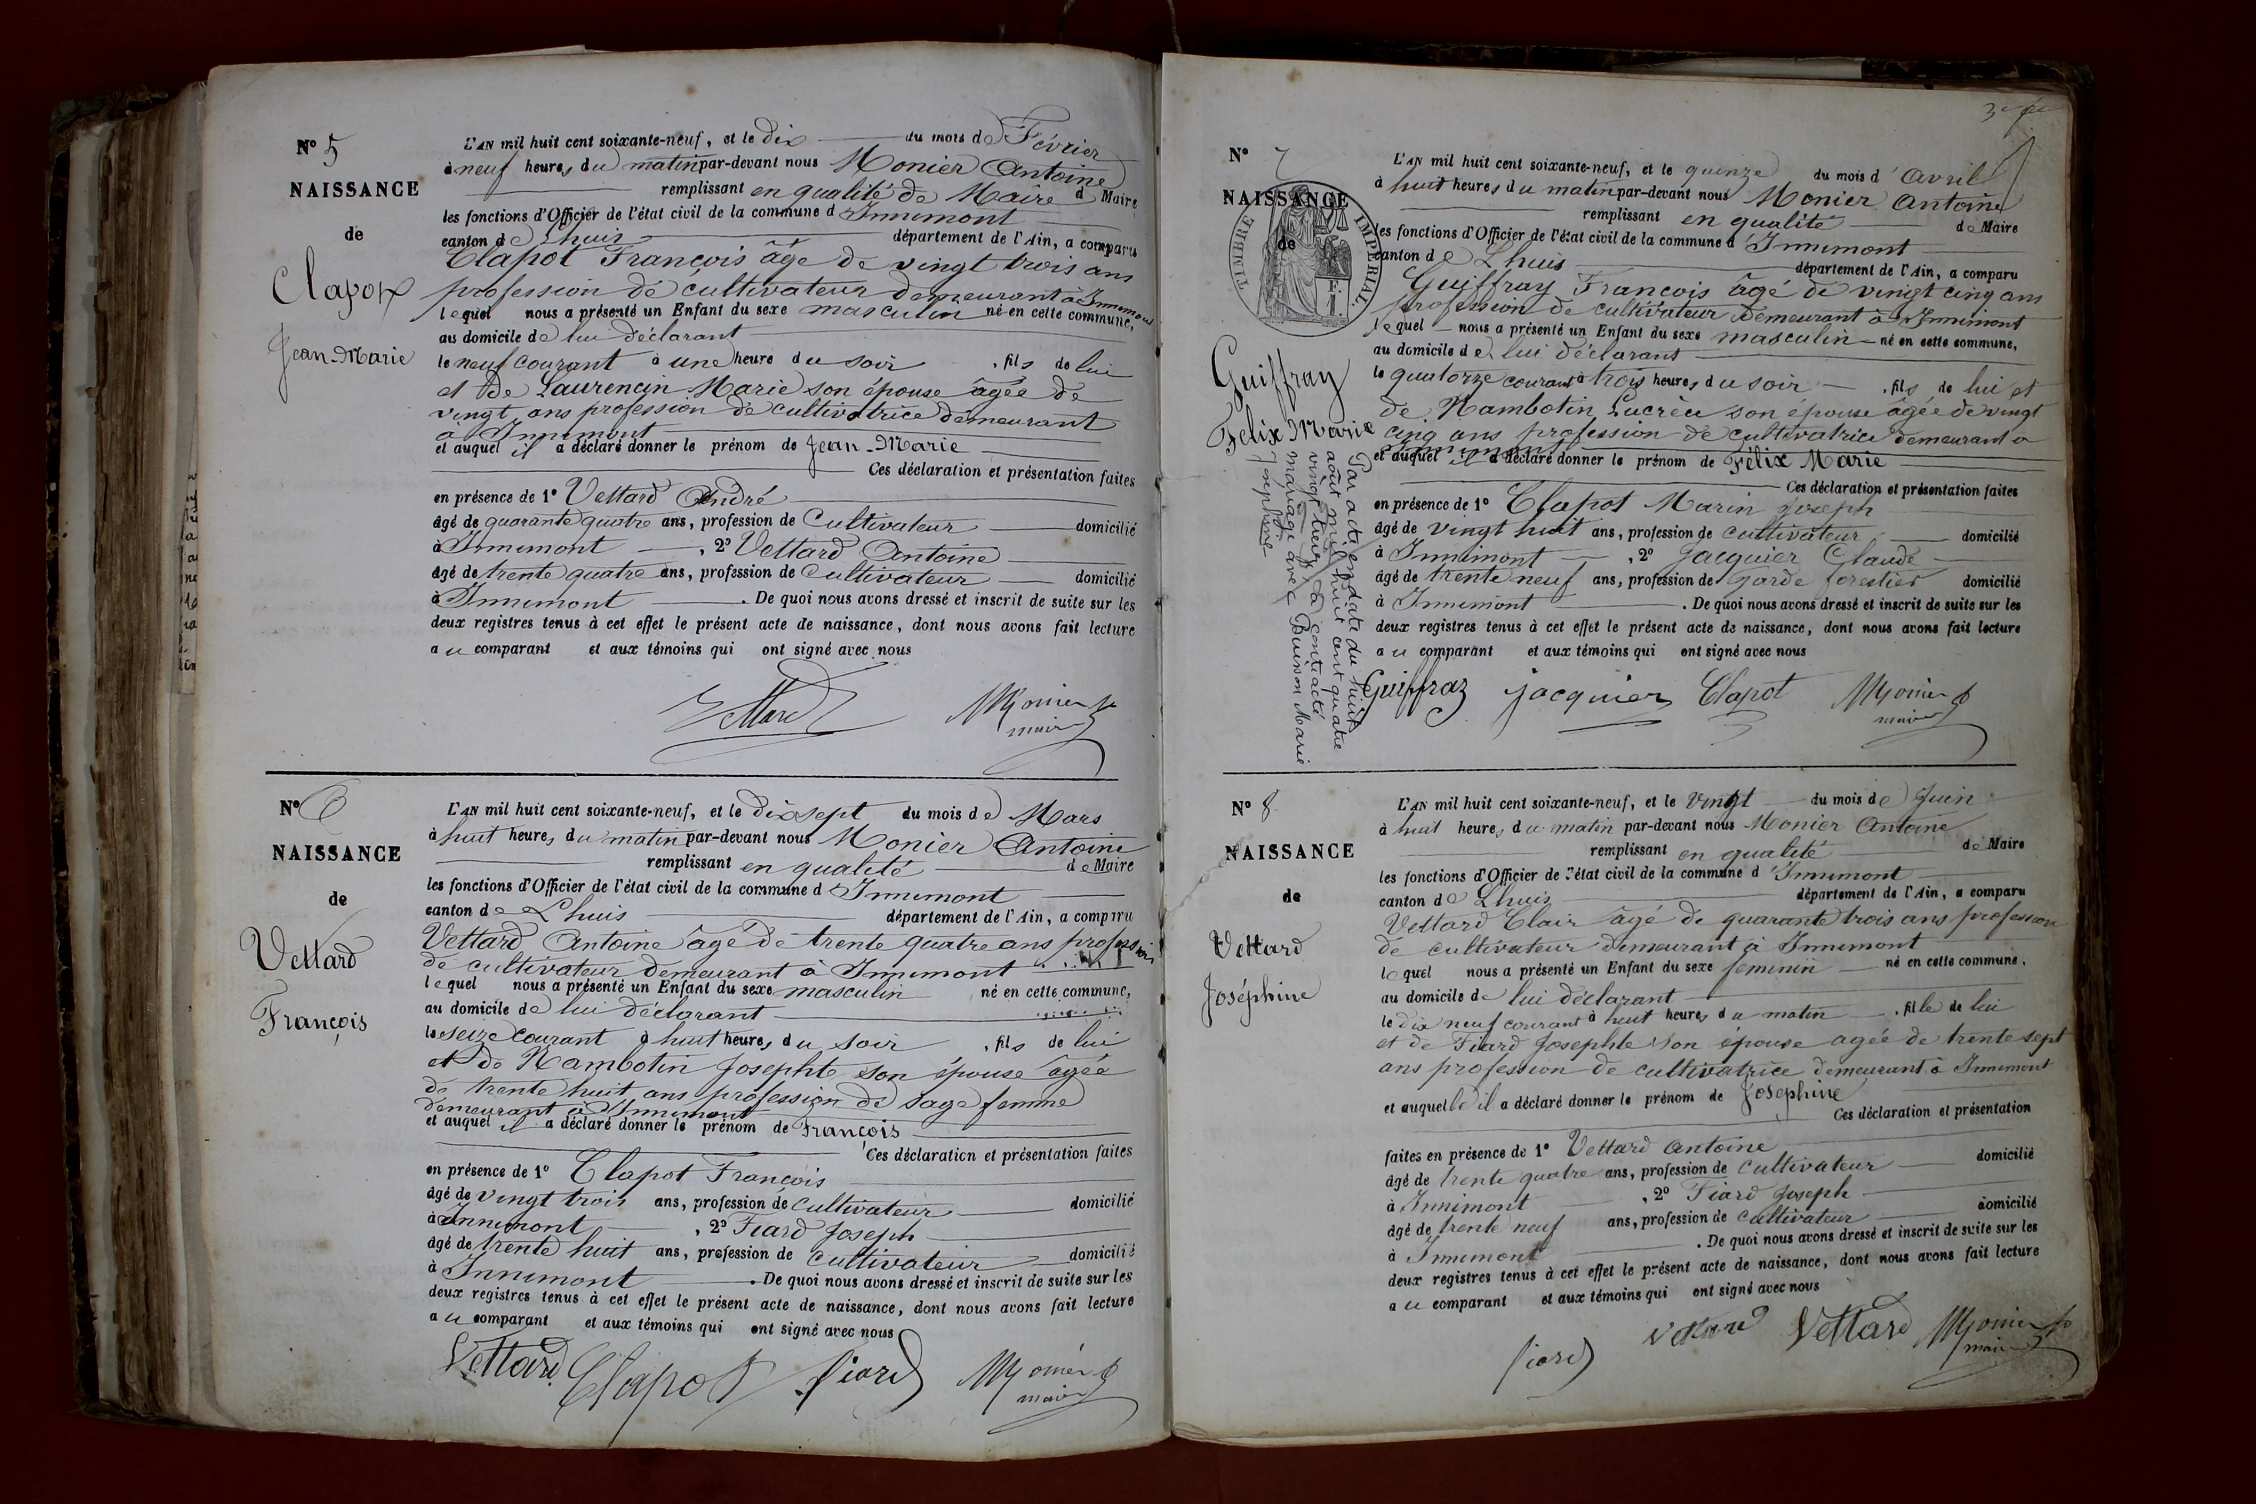 N° 5
NAISSANCE
de
Clapot
Jean-Marie
L'AN mil huit cent soixante-neuf, et le dix du mois de Février
à neuf heures du matin par-devant nous Monier Antoine
remplissant en qualité de Maire d Maire
les fonctions d'Officier de l'état civil de la commune d'Innimont
canton de Lhuis département de l'Ain, a comparu
Clapot François âgé de vingt trois ans
profession de cultivateur demeurant à Innimont
lequel nous a présenté un Enfant du sexe masculin né en cette commune,
au domicile de lui déclarant
le neuf courant à une heure du soir, fils de lui
et de Laurencin Marie son épouse âgée de
vingt ans profession de cultivatrice demeurant
à Innimont
et auquel il a déclaré donner le prénom de Jean-Marie
Ces déclaration et présentation faites
en présence de 1° Vettard André
âgé de quarante quatre ans, profession de Cultivateur domicilié
à Innimont, 2° Vettard Antoine
âgé de trente quatre ans, profession de Cultivateur domicilié
à Innimont. De quoi nous avons dressé et inscrit de suite sur les
deux registres tenus à cet effet le présent acte de naissance, dont nous avons fait lecture
au comparant et aux témoins qui ont signé avec nous
Vettard Monier
maire
N° 6
NAISSANCE
de
Vettard
François
L'AN mil huit cent soixante-neuf, et le dix sept du mois de Mars
à huit heures du matin par-devant nous Monier Antoine
remplissant en qualité de Maire
les fonctions d'Officier de l'état civil de la commune d'Innimont
canton de Lhuis département de l'Ain, a comparu
Vettard Antoine âgé de trente quatre ans profession
de cultivateur demeurant à Innimont
lequel nous a présenté un Enfant du sexe masculin né en cette commune,
au domicile de lui déclarant
le seize courant à huit heures du soir, fils de lui
et de Nambotin Josephte son épouse âgée
de trente huit ans profession de sage femme
demeurant à Innimont
et auquel il a déclaré donner le prénom de François
Ces déclaration et présentation faites
en présence de 1° Clapot François
âgé de vingt trois ans, profession de Cultivateur domicilié
à Innimont, 2° Fiard Joseph
âgé de trente huit ans, profession de cultivateur domicilié
à Innimont. De quoi nous avons dressé et inscrit de suite sur les
deux registres tenus à cet effet le présent acte de naissance, dont nous avons fait lecture
au comparant et aux témoins qui ont signé avec nous
Vettard Clapot fiard Monier
maire
N° 7
NAISSANCE
de
TIMBRE IMPÉRIAL
Guiffray
Félix Marie
Par acte en date du huit
août mil huit cent quatre
vingt
a contracté
mariage avec Buisson Marie
Joséphine
L'AN mil huit cent soixante-neuf, et le quinze du mois d'Avril
à huit heures du matin par-devant nous Monier Antoine
remplissant en qualité de Maire
les fonctions d'Officier de l'état civil de la commune d'Innimont
canton de Lhuis département de l'Ain, a comparu
Guiffray François âgé de vingt cinq ans
profession de cultivateur demeurant à Innimont
lequel nous a présenté un Enfant du sexe masculin né en cette commune,
au domicile de lui déclarant
le quatorze courant à trois heures du soir, fils de lui et
de Nambotin Lucrèce son épouse âgée de vingt
cinq ans profession de cultivatrice demeurant à
Innimont
et auquel il a déclaré donner le prénom de Félix Marie
Ces déclaration et présentation faites
en présence de 1° Clapot Marin Joseph
âgé de vingt huit ans, profession de cultivateur domicilié
à Innimont, 2° Jacquier Claude
âgé de trente neuf ans, profession de garde forestier domicilié
à Innimont. De quoi nous avons dressé et inscrit de suite sur les
deux registres tenus à cet effet le présent acte de naissance, dont nous avons fait lecture
au comparant et aux témoins qui ont signé avec nous
Guiffraz jacquier Clapot Monier
maire
N° 8
NAISSANCE
de
Vettard
Joséphine
L'AN mil huit cent soixante-neuf, et le vingt du mois de Juin
à huit heures du matin par-devant nous Monier Antoine
remplissant en qualité de Maire
les fonctions d'Officier de l'état civil de la commune d'Innimont
canton de Lhuis département de l'Ain, a comparu
Vettard Clair âgé de quarante trois ans profession
de cultivateur demeurant à Innimont
lequel nous a présenté un Enfant du sexe feminin né en cette commune,
au domicile de lui déclarant
le dix neuf courant à huit heures du matin, fille de lui
et de Fiard Josephte son épouse agée de trente sept
ans profession de cultivatrice demeurant à Innimont
et auquelle il a déclaré donner le prénom de Josephine
Ces déclaration et présentation
faites en présence de 1° Vettard Antoine
âgé de trente quatre ans, profession de cultivateur domicilié
à Innimont, 2° Fiard Joseph
âgé de trente neuf ans, profession de cultivateur domicilié
à Innimont. De quoi nous avons dressé et inscrit de suite sur les
deux registres tenus à cet effet le présent acte de naissance, dont nous avons fait lecture
au comparant et aux témoins qui ont signé avec nous
fiard Vettard Vettard Monier
maire